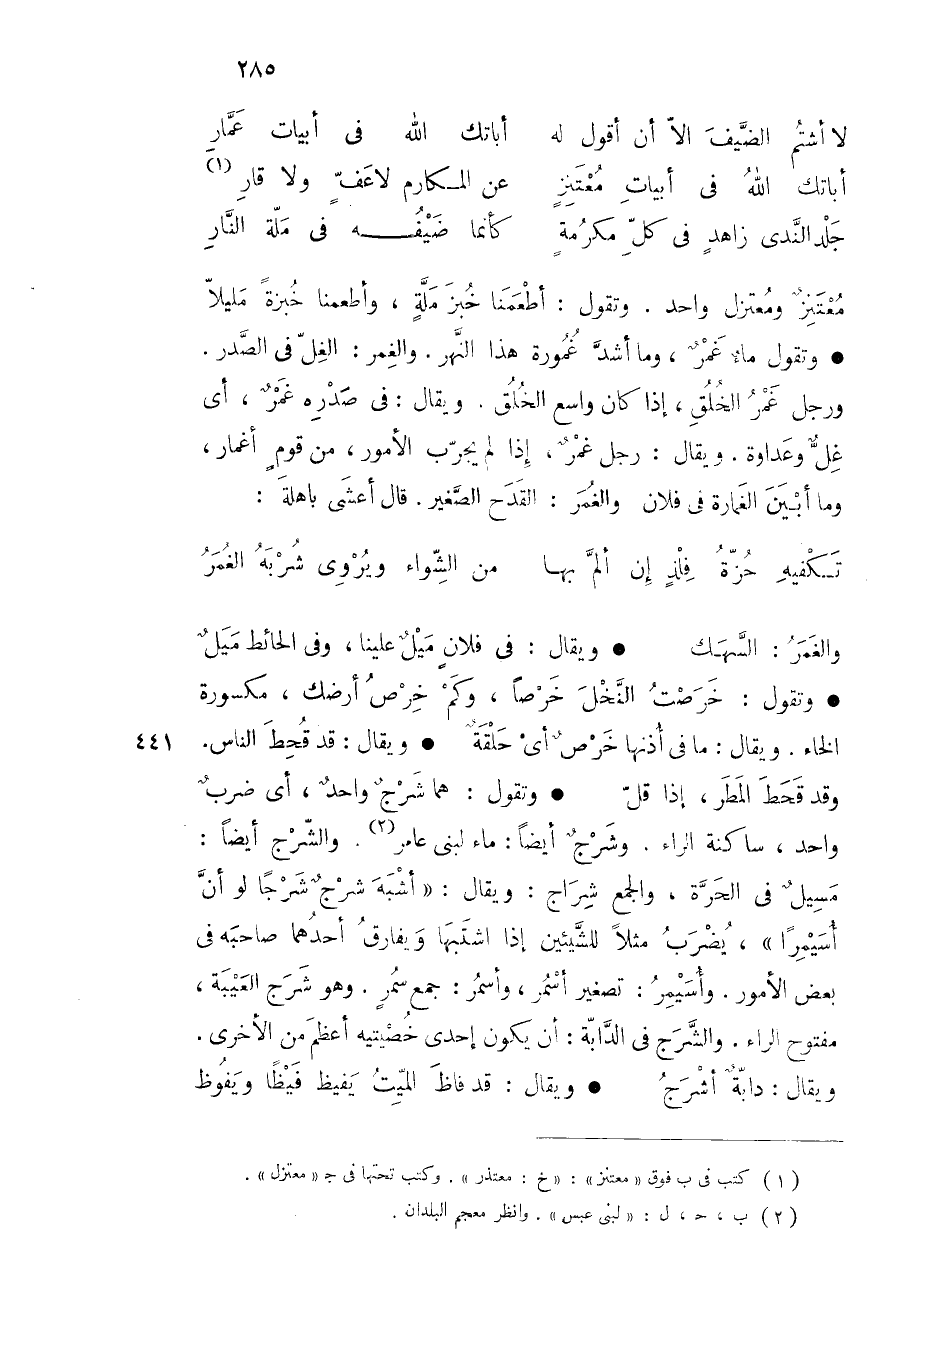 ٢٨٥
لا أشتُم الضَّيفَ الاّ أن أقول له أباتك الله فى أبيات عَمَّارِ
أباتك اللهُ فى أبياتِ مُعْتَنِزٍ عن المكارم لا عَفٍّ ولا قارِ (١)
جَلْد النَّدى زاهدٍ فى كلّ مكرُمةٍ كأنما ضَيْفُـــه فى مَلّة النَّارِ
مُعْتَنِزٌ ومُعتزل واحد . وتقول : أطْعَمَنَا خُبزَ مَلَّةٍ ، وأطعمنا خُبزةً مَليلاً
● وتقول ماءٌ غَمْرٌ ، وما أشدَّ غُمُورة هذا النَّهر . والغِمر : الغِلّ فى الصَّدر .
ورجل غَمْرُ الخُلُقِ ، إذا كان واسع الخُلُق . ويقال : فى صَدْرِه غِمْرٌ ، أى
غِلٌّ وعَداوة . ويقال : رجل غمْرٌ ، إِذا لم يجرّب الأمور ، من قومٍ أغمار ،
وما أبْيَنَ الغَمارة فى فلان والغُمَر : القَدَح الصَّغير . قال أعشَى باهلةَ :
تَـكْفيهِ حُزّةُ فِلْذٍ إن ألمَّ بهـا من الشِّواء ويُرْوِى شُرْبَهُ الغُمَرُ
والغَمَرُ : السَّهَـك ● ويقال : فى فلانٍ مَيْلٌ علينا ، وفى الحائط مَيَلٌ
● وتقول : خَرَصْتُ النَّخْلَ خَرْصاً ، وكَمْ خِرْصُ أرضك ، مكسورة
الخاء . ويقال : ما فى أُذنها خَرْصٌ أىْ حَلْقَةٌ ● ويقال : قد قُحِطَ الناس. ٤٤١
وقد قَحَطَ المَطَر ، إذا قلّ ● وتقول : هما شَرْجٌ واحدٌ ، أى ضربٌ
واحد ، ساكنة الراء . وشَرْجٌ أيضاً : ماء لبنى عامر (٢) . والشّرْج أيضاً :
مَسِيلٌ فى الحَرَّة ، والجمع شِرَاج : ويقال : « أشْبَهَ شرْجٌ شَرْجًا لو أنَّ
أُسَيْمِرًا » ، يُضْرَبُ مثلاً للشَّيئين إذا اشتَبَهَا وَيفارقُ أحدُهما صاحبَه فى
بعض الأمور . وأُسَيْمِرُ : تصغير أسْمُر ، وأسمُر : جمع سمُرٍ . وهو شَرَج العَيْبَة ،
مفتوح الراء . والشَّرَج فى الدَّابّة : أن يكون إحدى خُصْيتيه أعظمَ من الأخرى .
ويقال : دابّةٌ أشْرَجُ ● ويقال : قد فاظَ الميّتُ يَفيظ فَيْظًا وَيَفُوظ
(١) كتب فى ب فوق « معتنز » : « خ : معتذر » . وكتب تحتها فى ج « معتزل » .
(٢) ب ، ح ، ل : « لبنى عبس » . وانظر معجم البلدان .